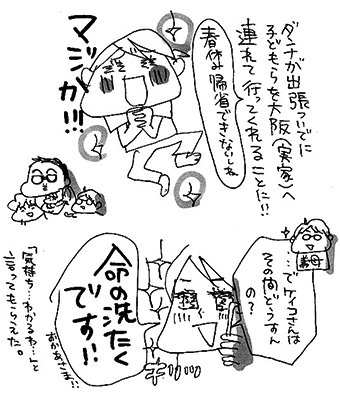 ダンナが出張ついでに
子どもらを大阪(実家)へ
連れて行ってくれることに!!
春休み帰省できないしね
マジか!!!
義母
…でケイコさんは
その間どうすん
の?
命の洗たく
です!!
おかあさま!!
キリッ
「気持ち…わかるわ…」と
言ってもらえた。